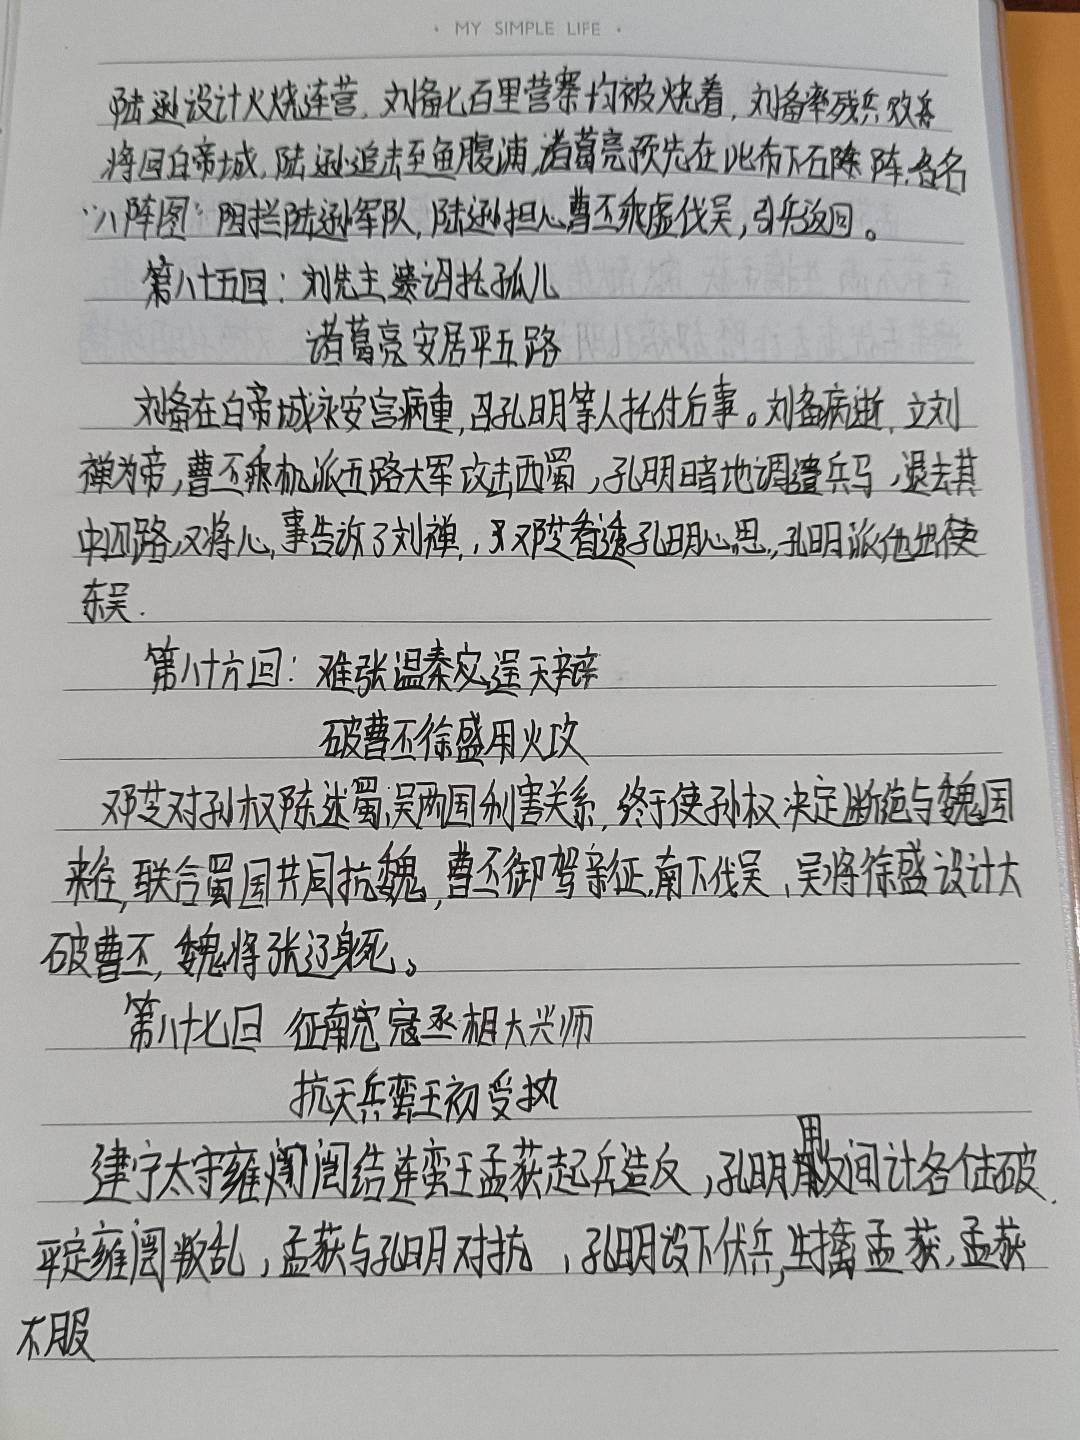 · MY SIMPLE LIFE ·
陆逊设计火烧连营，刘备七百里营寨均被烧着，刘备率残兵败
将回白帝城，陆逊追击至鱼腹浦，诸葛亮预先在此布下石阵，名
“八阵图”阻拦陆逊军队，陆逊担心曹丕乘虚伐吴，引兵返回。
第八十五回：刘先主遗诏托孤儿
诸葛亮安居平五路
刘备在白帝城永安宫病重，召孔明等人托付后事。刘备病逝，立刘
禅为帝，曹丕乘机派五路大军攻击西蜀，孔明暗地调遣兵马，退去其
中四路，又将心事告诉了刘禅，邓芝看透孔明心思，孔明派他出使
东吴.
第八十六回：难张温秦宓逞天辩
破曹丕徐盛用火攻
邓芝对孙权陈述蜀、吴两国利害关系，终于使孙权决定断绝与魏国
来往，联合蜀国共同抗魏，曹丕御驾亲征，南下伐吴，吴将徐盛设计大
破曹丕，魏将张辽身死。
第八十七回 征南寇丞相大兴师
抗天兵蛮王初受执
建宁太守雍闿结连蛮王孟获起兵造反，孔明用反间计各个击破.
平定雍闿叛乱，孟获与孔明对抗，孔明设下伏兵，生擒孟获，孟获
不服